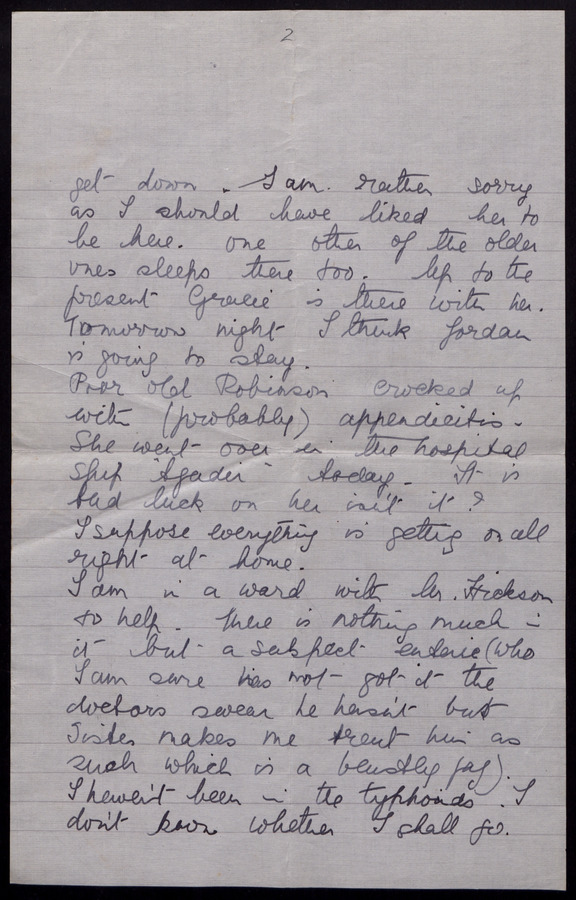 2
get down. I am rather sorry
as I should have liked her to
be here. One other of the older
ones sleeps there too. Up to the
present Gracie is there with her.
Tomorrow night I think Jordan
is going to stay.
Poor old Robinson crocked up
with (probably) appendicitis.
She went over in the hospital
ship "Agadir" today. It is
bad luck on her isn't it?
I suppose everything is getting on all
right at home.
I am in a ward with Mr. Hickson
to help. There is nothing much in
it but a suspect enteric (who
I am sure has not got it the
doctors swear he hasn't but
Sister makes me treat him as
such which is a beastly fag).
I haven't been in the typhoids. I
don't know whether I shall go.